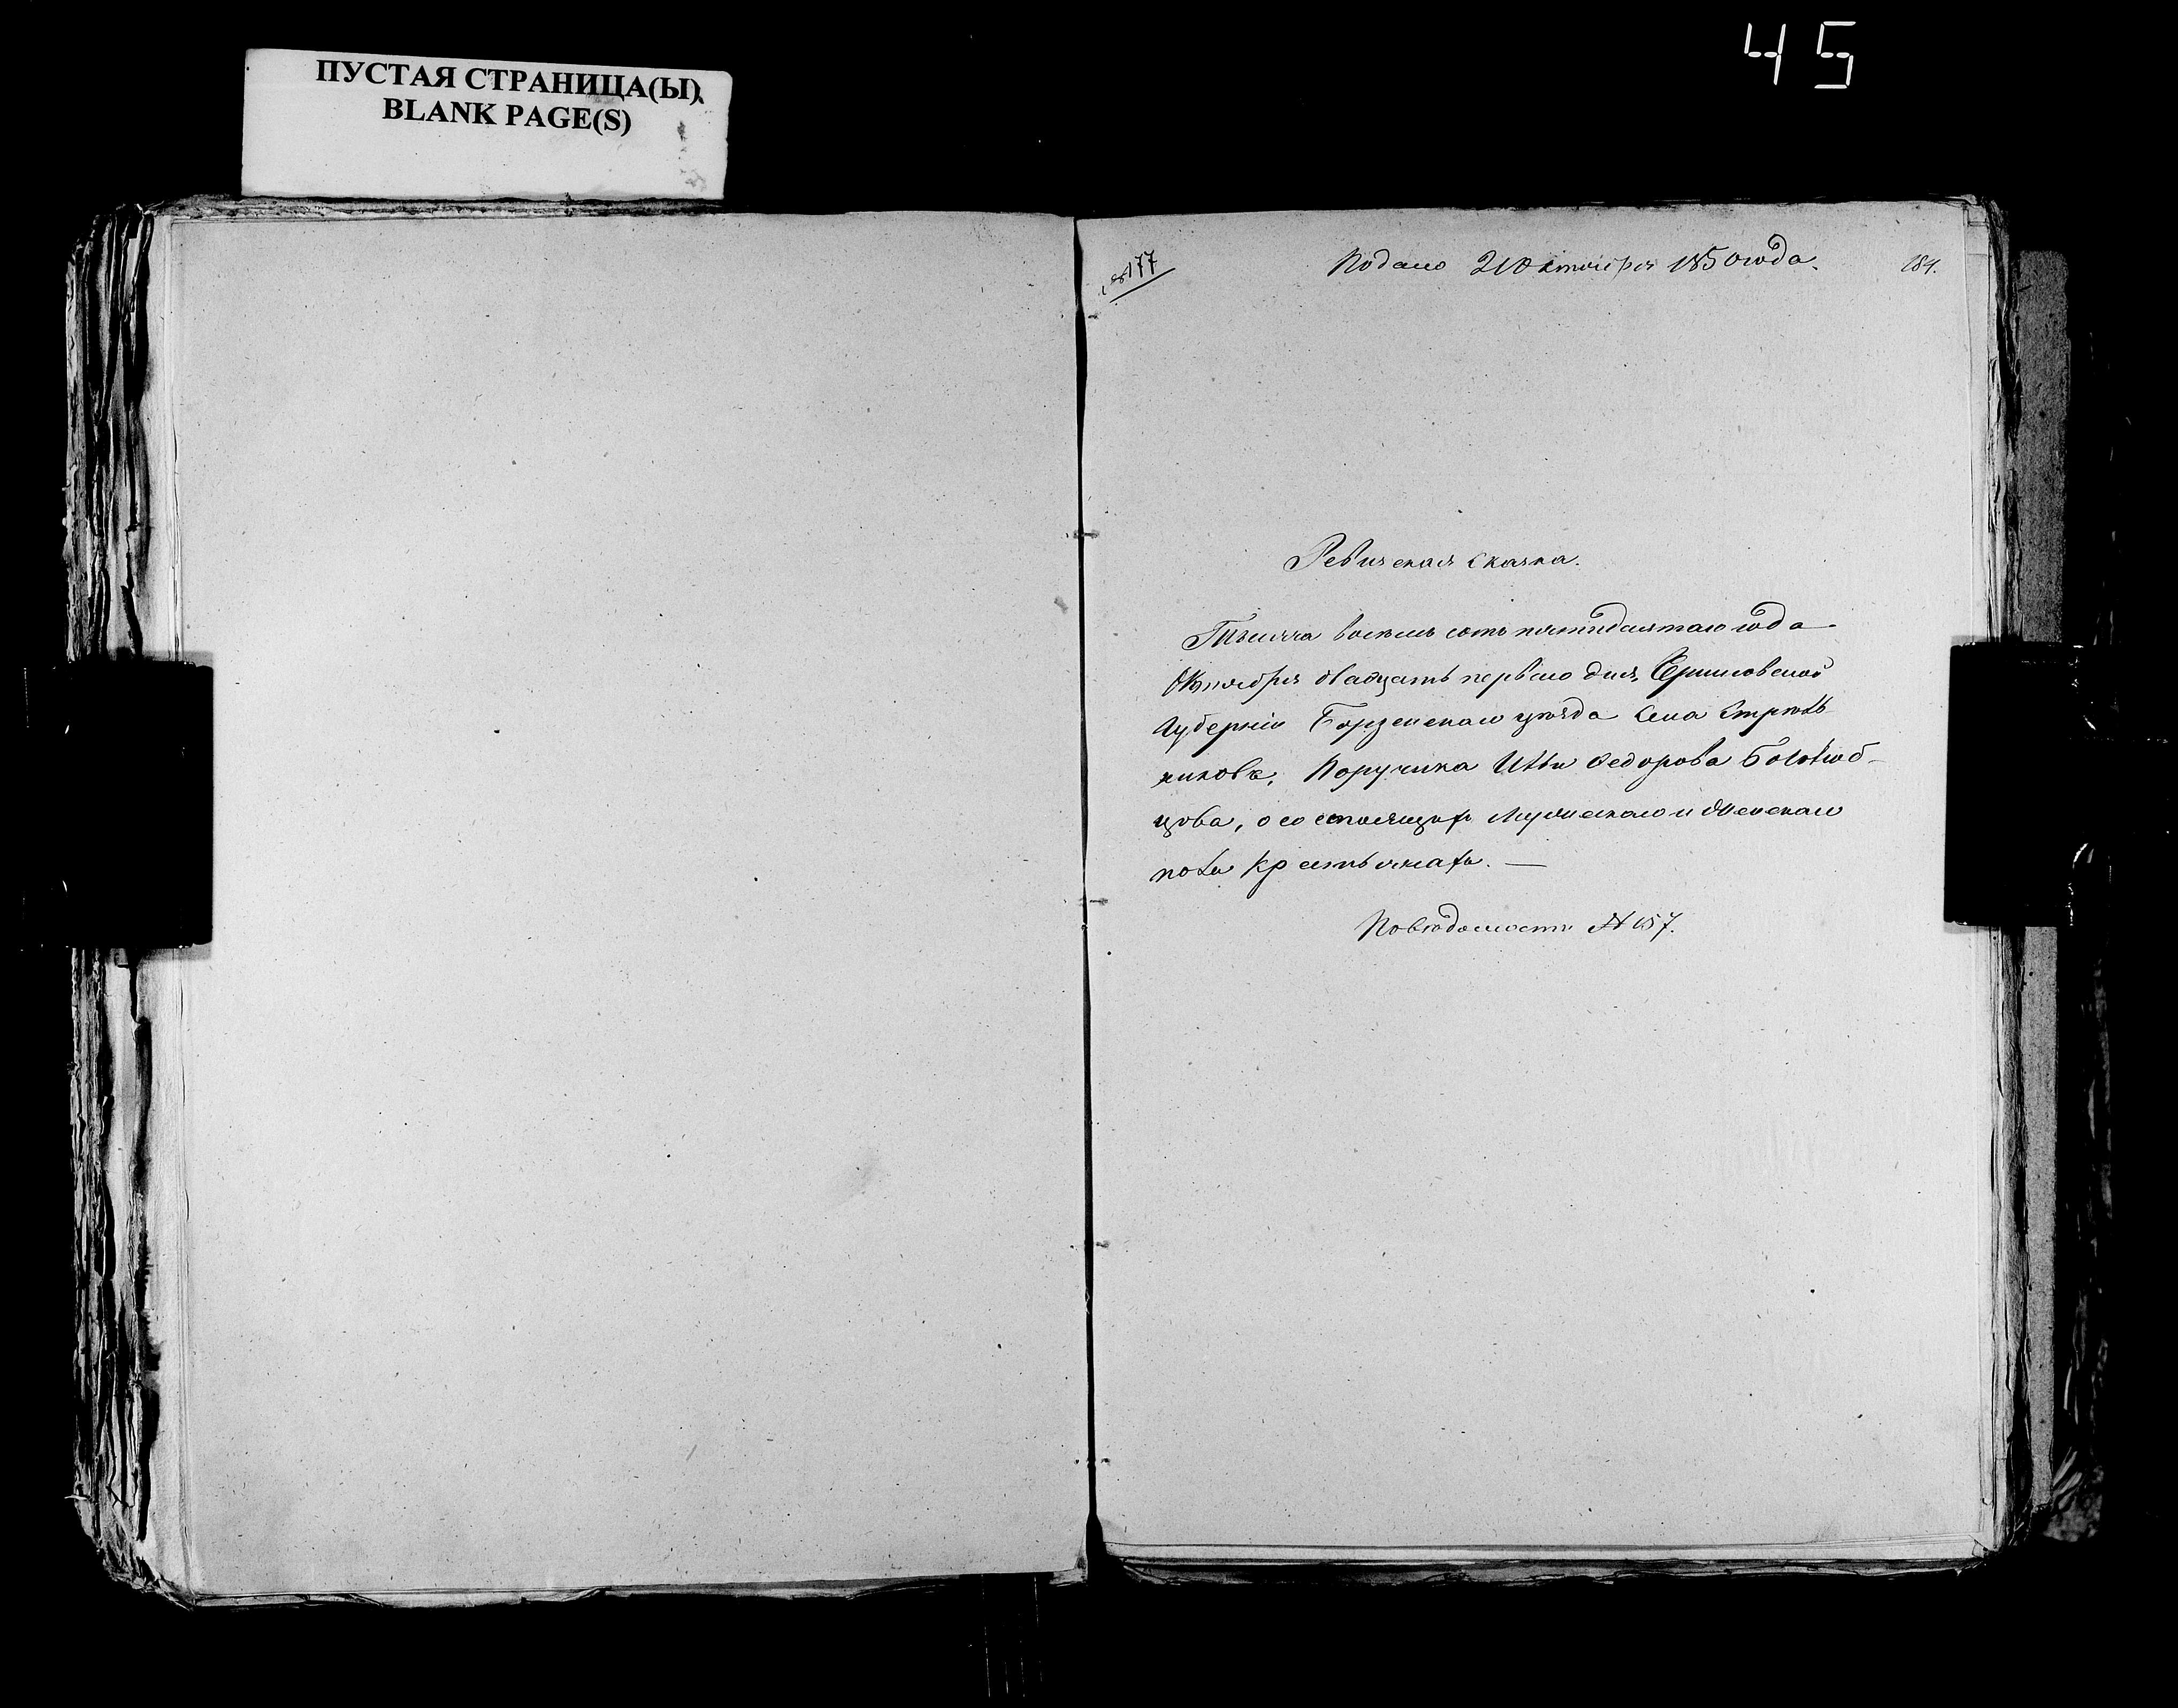 45
ПУСТАЯ СТРАНИЦА(Ы)
BLANK PAGE(S)
№ 177
Подано 21 Октября 1850 года.
184.
Ревизская Сказка.
Тысяча восемь сотъ пятидесятаго года
Октября двадцать перваго дня, Черниговской
Губерніи Борзенскаго уѣзда Села Стрѣль
никовъ, Поручика Ильи Федорова Боголюб-
цова, о состоящихъ Мужескаго и Женскаго
пола крестьянахъ. —
По вѣдомости № 157.